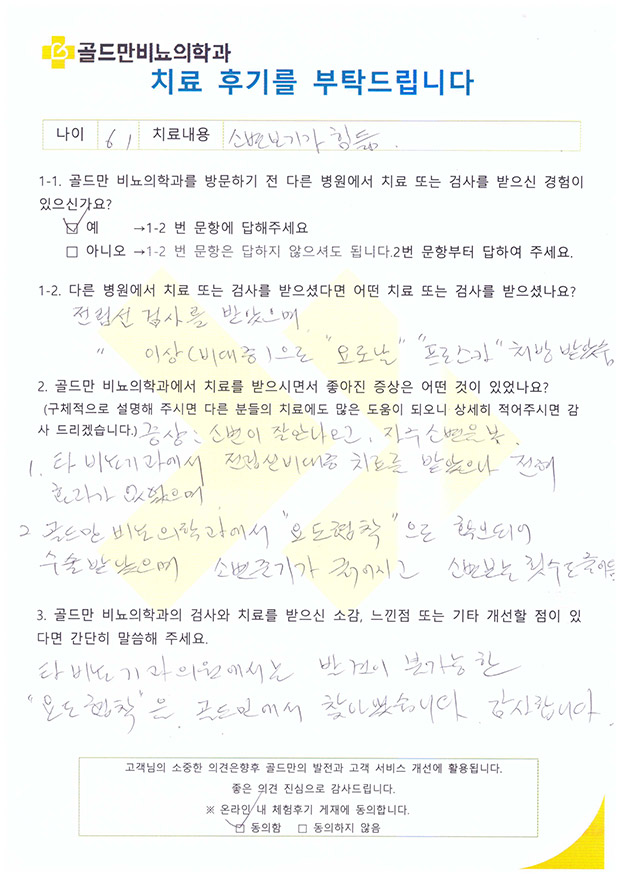 골드만비뇨의학과
치료 후기를 부탁드립니다
나이 61 치료내용 소변보기가 힘듦.
1-1. 골드만 비뇨의학과를 방문하기 전 다른 병원에서 치료 또는 검사를 받으신 경험이
있으신가요?
☑ 예 →1-2 번 문항에 답해주세요
□ 아니오 →1-2 번 문항은 답하지 않으셔도 됩니다.2번 문항부터 답하여 주세요.
1-2. 다른 병원에서 치료 또는 검사를 받으셨다면 어떤 치료 또는 검사를 받으셨나요?
전립선 검사를 받았으며
" 이상(비대증)으로 "요로날" "프로스카" 처방 받았음
2. 골드만 비뇨의학과에서 치료를 받으시면서 좋아진 증상은 어떤 것이 있었나요?
(구체적으로 설명해 주시면 다른 분들의 치료에도 많은 도움이 되오니 상세히 적어주시면 감
사 드리겠습니다.) 증상: 소변이 잘안나오고, 자주 소변을 봄.
1. 타 비뇨기과에서 전립선비대증 치료를 받았으나 전혀
효과가 없었으며
2 골드만 비뇨의학과에서 "요도협착"으로 확인되어
수술받았으며 소변줄기가 굵어지고 소변보는 횟수도 줄어듦
3. 골드만 비뇨의학과의 검사와 치료를 받으신 소감, 느낀점 또는 기타 개선할 점이 있
다면 간단히 말씀해 주세요.
타 비뇨기과의원에서는 발견이 불가능한
"요도협착"은 골드만에서 찾아냈습니다. 감사합니다.
고객님의 소중한 의견은향후 골드만의 발전과 고객 서비스 개선에 활용됩니다.
좋은 의견 진심으로 감사드립니다.
※ 온라인 내 체험후기 게재에 동의합니다.
☑ 동의함 □ 동의하지 않음